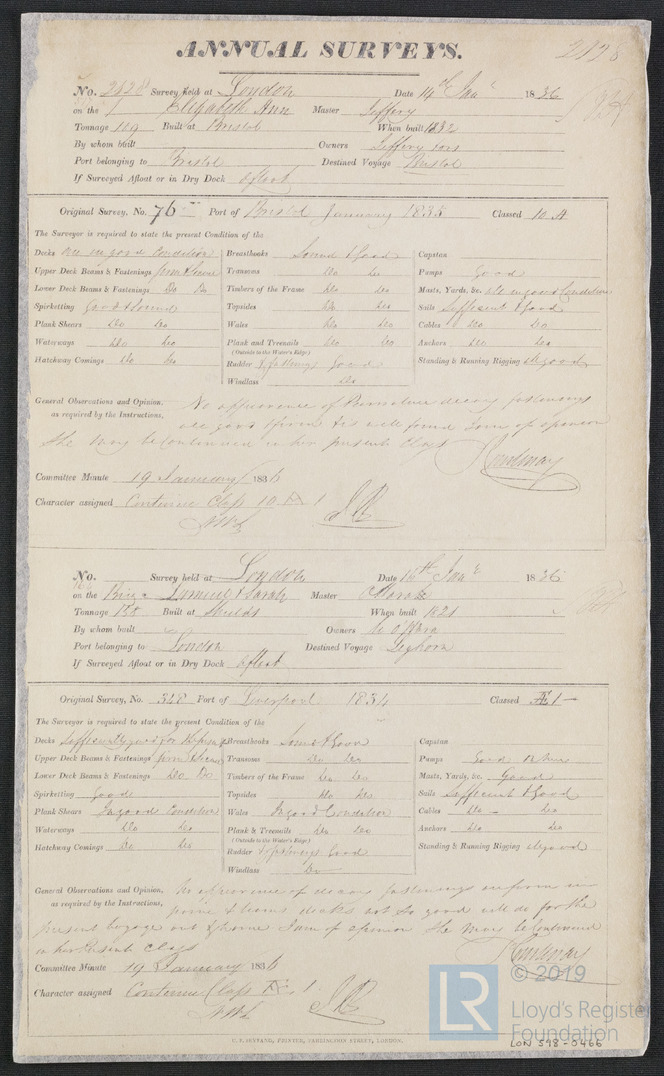 ANNUAL SURVEYS.
2128
No. 2128 Survey held at London Date 14th Jan 1836
on the Elizabeth Ann Master Jeffery
Tonnage 109 Built at Bristol When built 1832
By whom built Owners Jeffery
Port belonging to Bristol Destined Voyage Bristol
If Surveyed Afloat or in Dry Dock afloat
Original Survey, No. 76 Port of Bristol January 1835 Classed 10 A
The Surveyor is required to state the present Condition of the
Decks are in good Condition Breasthooks Sound & Good Capstan
Upper Deck Beams & Fastenings firm & Secure Transoms Do Do Pumps Good
Lower Deck Beams & Fastenings Do Do Timbers of the Frame Do Do Masts, Yards, &c. all in good Condition
Spirketting Good & Sound Topsides Do Do Sails Sufficient & Good
Plank Shears Do Do Wales Do Do Cables Do Do
Waterways Do Do Plank and Treenails Do Do Anchors Do Do
(Outside to the Water's Edge)
Hatchway Comings Do Do Rudder & fastenings Good Standing & Running Rigging good
Windlass Do
General Observations and Opinion, No appearance of decay fastenings
as required by the Instructions, all good & firm & is well found I am of opinion
She may be Continued in her present Class
Courtenay
Committee Minute 19 January 1836
Character assigned Continue Class 10 A 1
No. Survey held at London Date 14th Jan 1836
on the Brig Samuel & Sarah Master
Tonnage Built at Shields When built 1821
By whom built Owners
Port belonging to London Destined Voyage Leghorn
If Surveyed Afloat or in Dry Dock afloat
Original Survey, No. 348 Port of Liverpool 1834 Classed Æ 1
The Surveyor is required to state the present Condition of the
Decks sufficiently good for Breasthooks Sound & Good Capstan
Upper Deck Beams & Fastenings firm & Secure Transoms Do Do Pumps Good
Lower Deck Beams & Fastenings Do Do Timbers of the Frame Do Do Masts, Yards, &c. Good
Spirketting Good Topsides Do Do Sails Sufficient & Good
Plank Shears In good Condition Wales In good Condition Cables Do Do
Waterways Do Do Plank & Treenails Do Do Anchors Do Do
(Outside to the Water's Edge)
Hatchway Comings Do Do Rudder & fastenings Good Standing & Running Rigging good
Windlass Do
General Observations and Opinion, No appearance of decay fastenings
as required by the Instructions, decks not so good will do for the
present Voyage out & home I am of opinion She may be Continued
in her present Class
Courtenay
Committee Minute 19 January 1836
Character assigned Continue Class Æ 1
LR © 2019
Lloyd's Register
Foundation
LON 598-0466
PRINTER, LONDON.